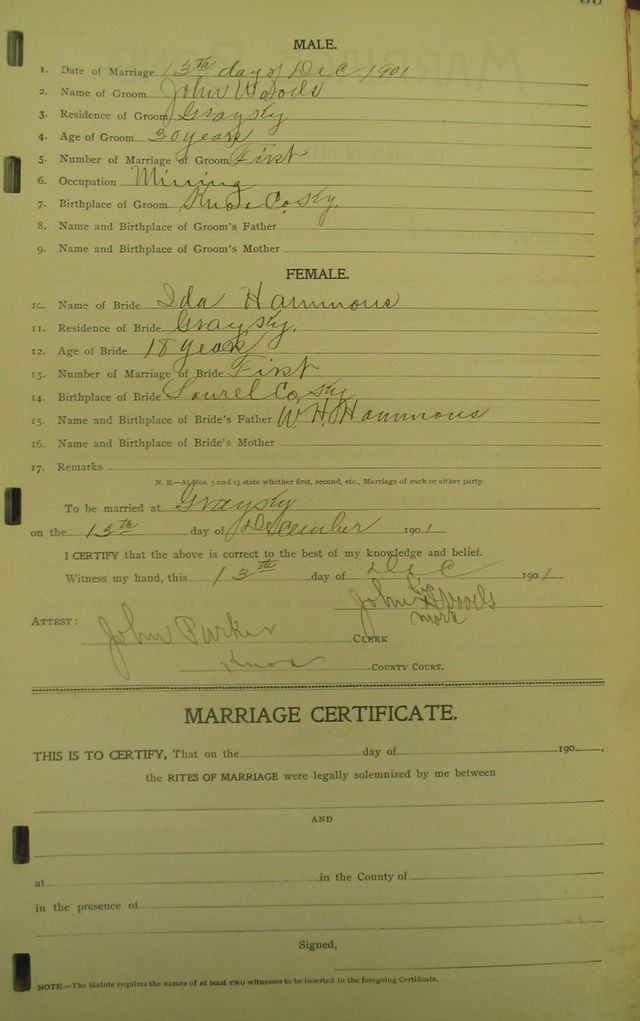 MALE.
1. Date of Marriage 13th day of Dec 1901
2. Name of Groom John Woods
3. Residence of Groom Gray Ky
4. Age of Groom 30 years
5. Number of Marriage of Groom First
6. Occupation Mining
7. Birthplace of Groom Knox Co, Ky,
8. Name and Birthplace of Groom's Father
9. Name and Birthplace of Groom's Mother
FEMALE.
10. Name of Bride Ida Hammons
11. Residence of Bride Grays Ky.
12. Age of Bride 18 years
13. Number of Marriage of Bride First
14. Birthplace of Bride Laurel Co, Ky
15. Name and Birthplace of Bride's Father W. H. Hammons
16. Name and Birthplace of Bride's Mother
17. Remarks
N. B.—At Nos. 5 and 13 state whether first, second, etc., Marriage of each or either party.
To be married at Grays Ky
on the 13th day of December 1901
I CERTIFY that the above is correct to the best of my knowledge and belief.
Witness my hand, this 13th day of Dec 1901
John his x Woods
mark
ATTEST: John Parker CLERK
Knox COUNTY COURT.
MARRIAGE CERTIFICATE.
THIS IS TO CERTIFY, That on the day of 190 ,
the RITES OF MARRIAGE were legally solemnized by me between
AND
at in the County of
in the presence of
Signed,
NOTE.—The Statute requires the names of at least two witnesses to be inserted in the foregoing Certificate.